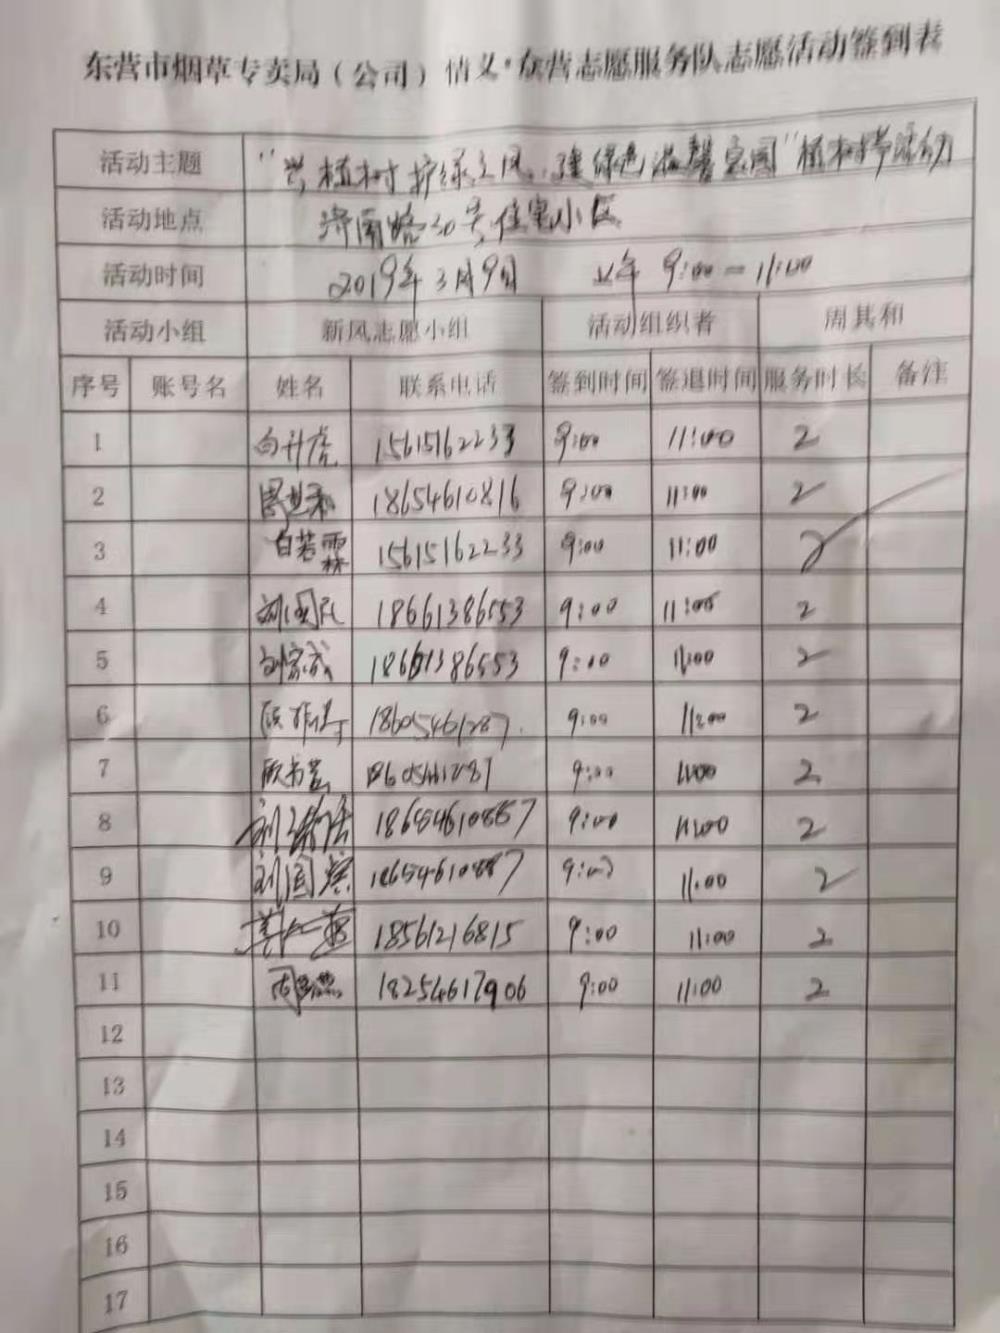 东营市烟草专卖局（公司）情义·东营志愿服务队志愿活动签到表
活动主题 "兴植树护绿之风、建绿色温馨家园"植树节活动
活动地点 济南路30号住宅小区
活动时间 2019年3月9日 上午 9:00-11:00
活动小组 新风志愿小组 活动组织者 周其和
序号 账号名 姓名 联系电话 签到时间 签退时间 服务时长 备注
1 白升虎 15615162233 9:00 11:00 2
2 18654610816 9:00 11:00 2
3 白若霖 15615162233 9:00 11:00 2
4 刘国民 18661386553 9:00 11:00 2
5 18661386553 9:00 11:00 2
6 18605461287 9:00 11:00 2
7 9:00 11:00 2
8 9:00 11:00 2
9 9:00 11:00 2
10 18561216815 9:00 11:00 2
11 18254617906 9:00 11:00 2
12
13
14
15
16
17